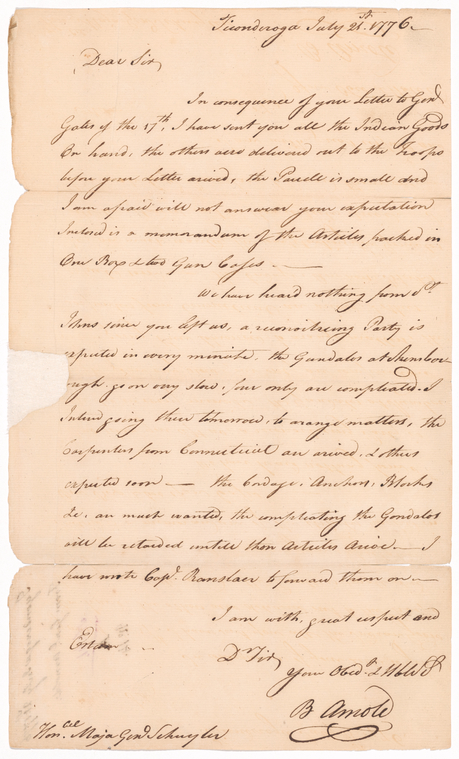 Ticonderoga July 21st. 1776.
Dear Sir,
In consequence of your Letter to Genl
Gates of the 17th, I have sent you all the Indian Goods
On hand, the others were delivered out to the Troops
before your Letter arived, the Parcell is small and
I am afraid will not answear your expectation
Inclosed is a memorandum of the Articles packed in
One Box & two Gun Cases
We have heard nothing from St.
Johns since you left us, a reconoitreing Party is
expected in every minute. the Gundalos at Skensbor-
ough go on very slow, four only are compleated. I
Intend going there tomorrow, to arange matters, the
Carpenters from Connecticut are arived, & others
expected soon — the Cordage, Anchors, Blocks
&c, are much wanted, the compleating the Gondalos
will be retarded untill those Articles Arive. — I
have wrote Capt. Ranslaer to forward them on
I am with great respect and
D Sir
Your Obedt. & Hble St
B Arnold
Honble Major Genl. Schuyler